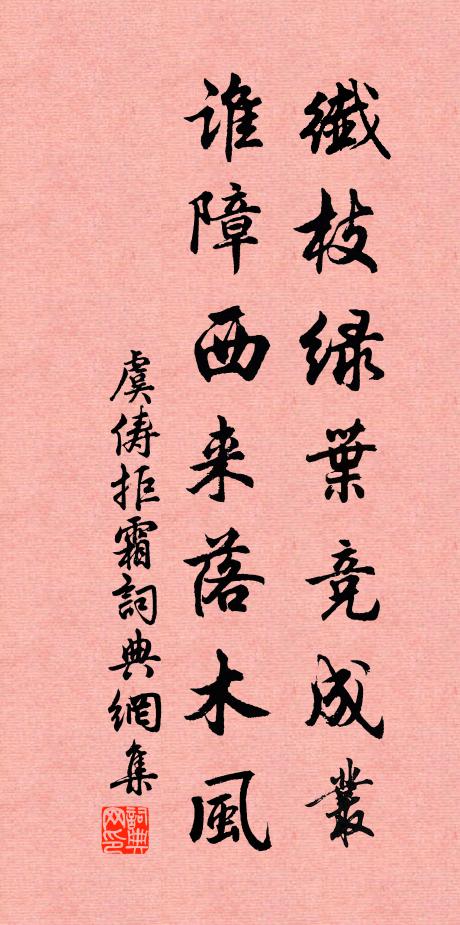 纖枝緑葉竞成叢
誰障西来落木風
虞儔拒霜詞典網集
詞典网印